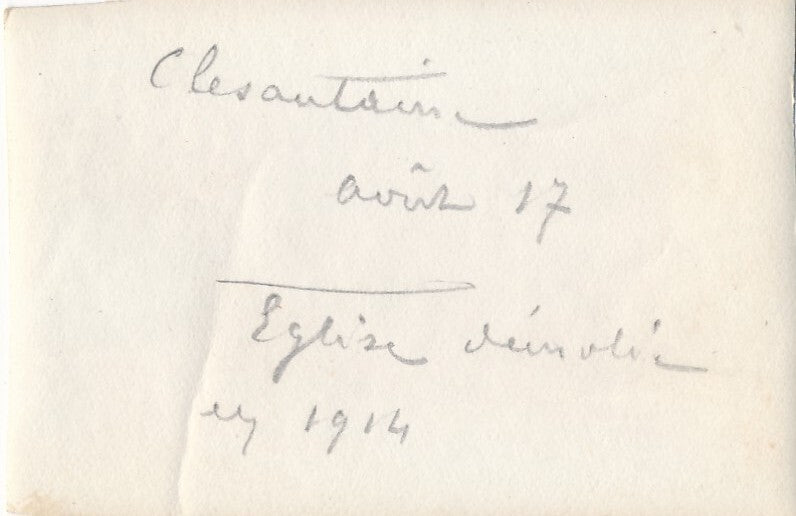 Clesantaine
août 17
Eglise démolie
en 1914